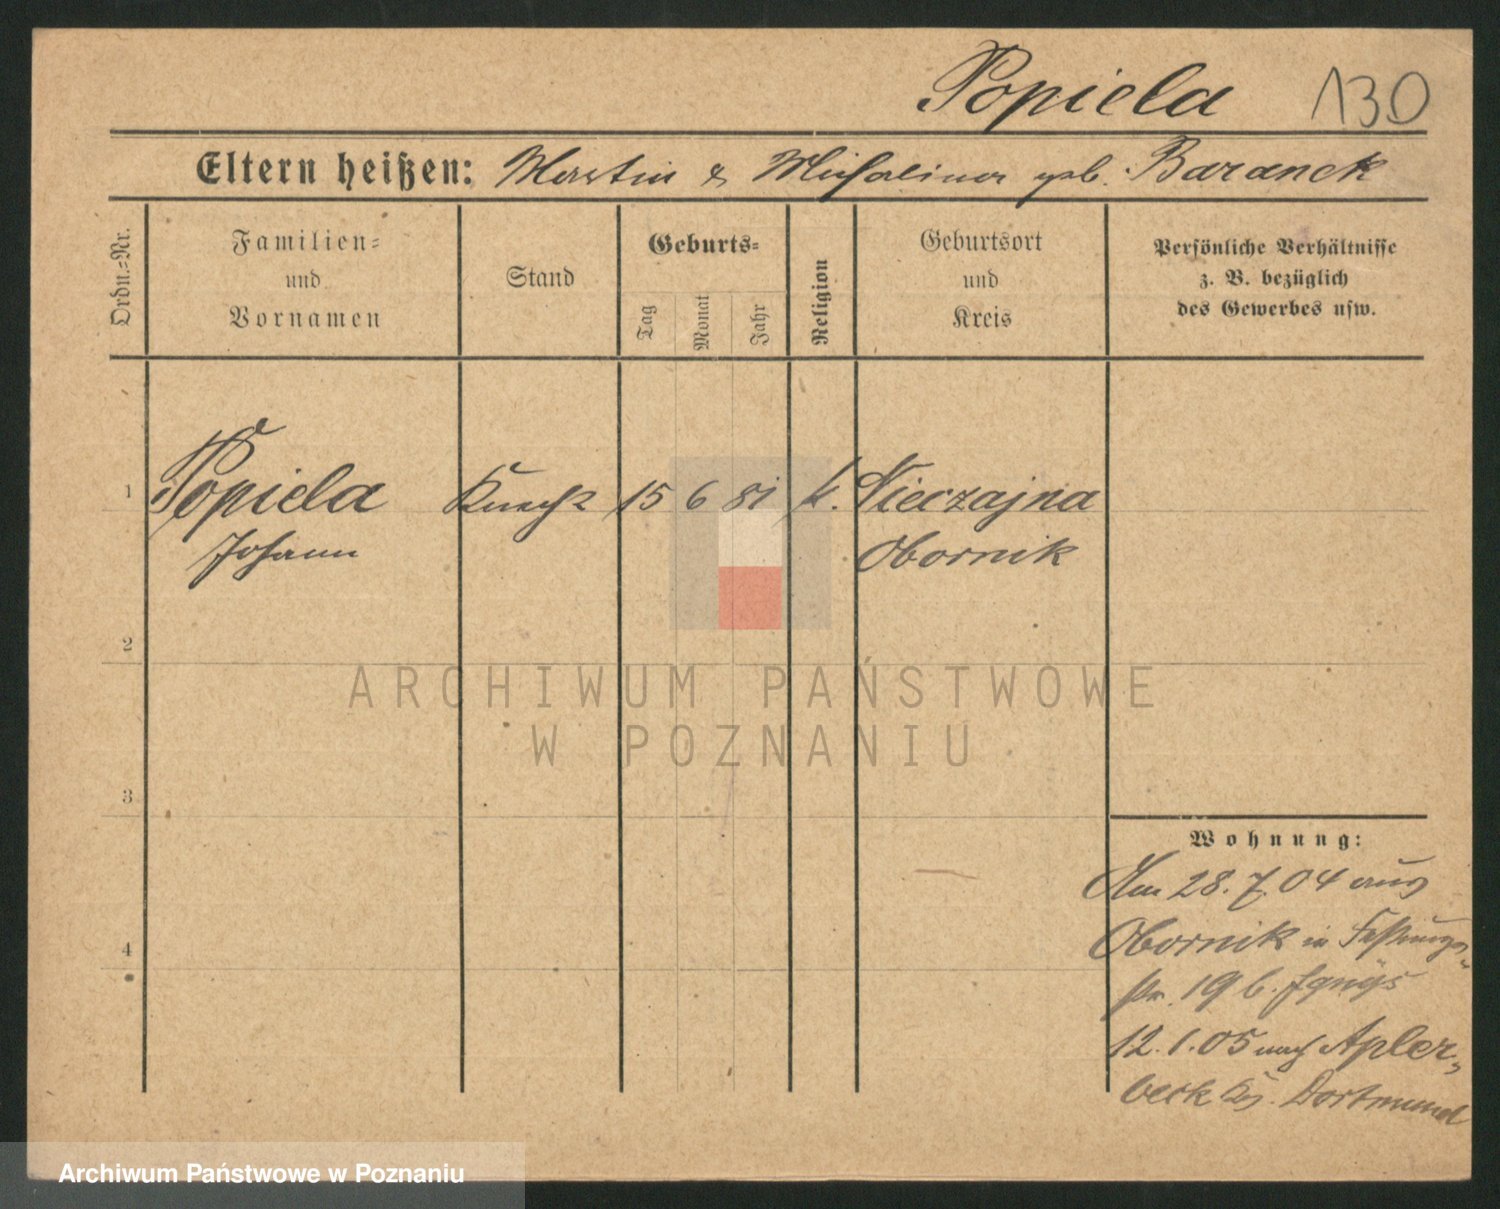 Popiela 130
Eltern heißen: Martin & Michalina geb. Baranek
Ordn.=Nr.
Familien=
und
Vornamen
Stand
Geburts=
Tag
Monat
Jahr
Religion
Geburtsort
und
Kreis
Persönliche Verhältnisse
z. B. bezüglich
des Gewerbes usw.
1 Popiela Knecht 15 6 81 k. Nieczajna
Johann Obornik
2
3
4
Wohnung:
Am 28. 7. 04 aus
Obornik in Festungs-
str. 19 b.
12. 1. 05 nach Apler-
beck Krs. Dortmund
ARCHIWUM PAŃSTWOWE
W POZNANIU
Archiwum Państwowe w Poznaniu